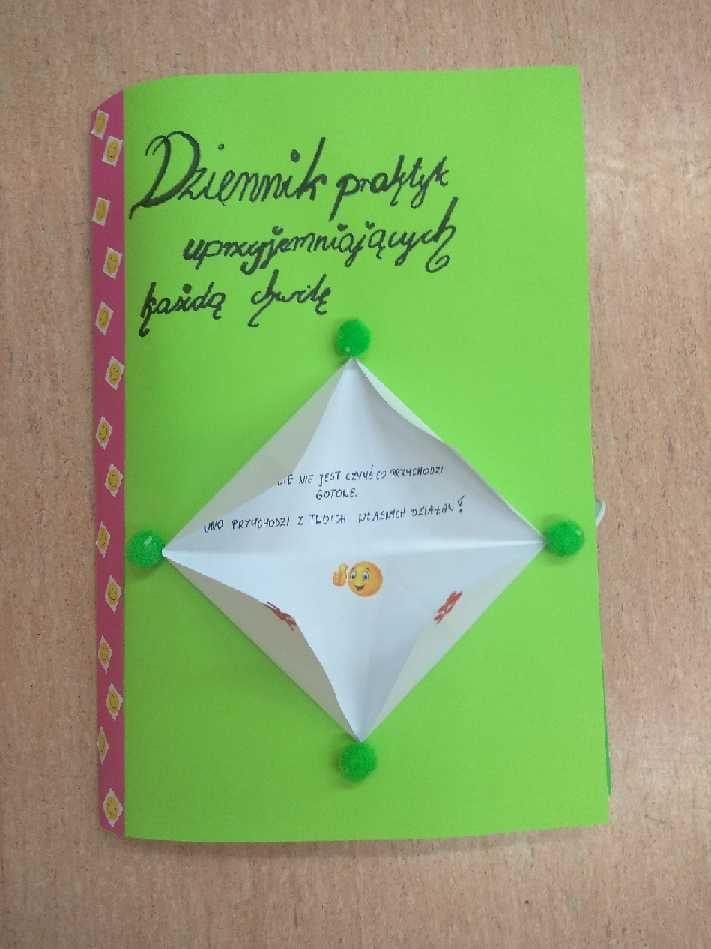 Dziennik praktyk
uprzyjemniających
każdą chwilę
NIE JEST CZYMŚ CO PRZYCHODZI
GOTOWE.
ONO PRZYCHODZI Z TWOICH WŁASNYCH DZIAŁAŃ!